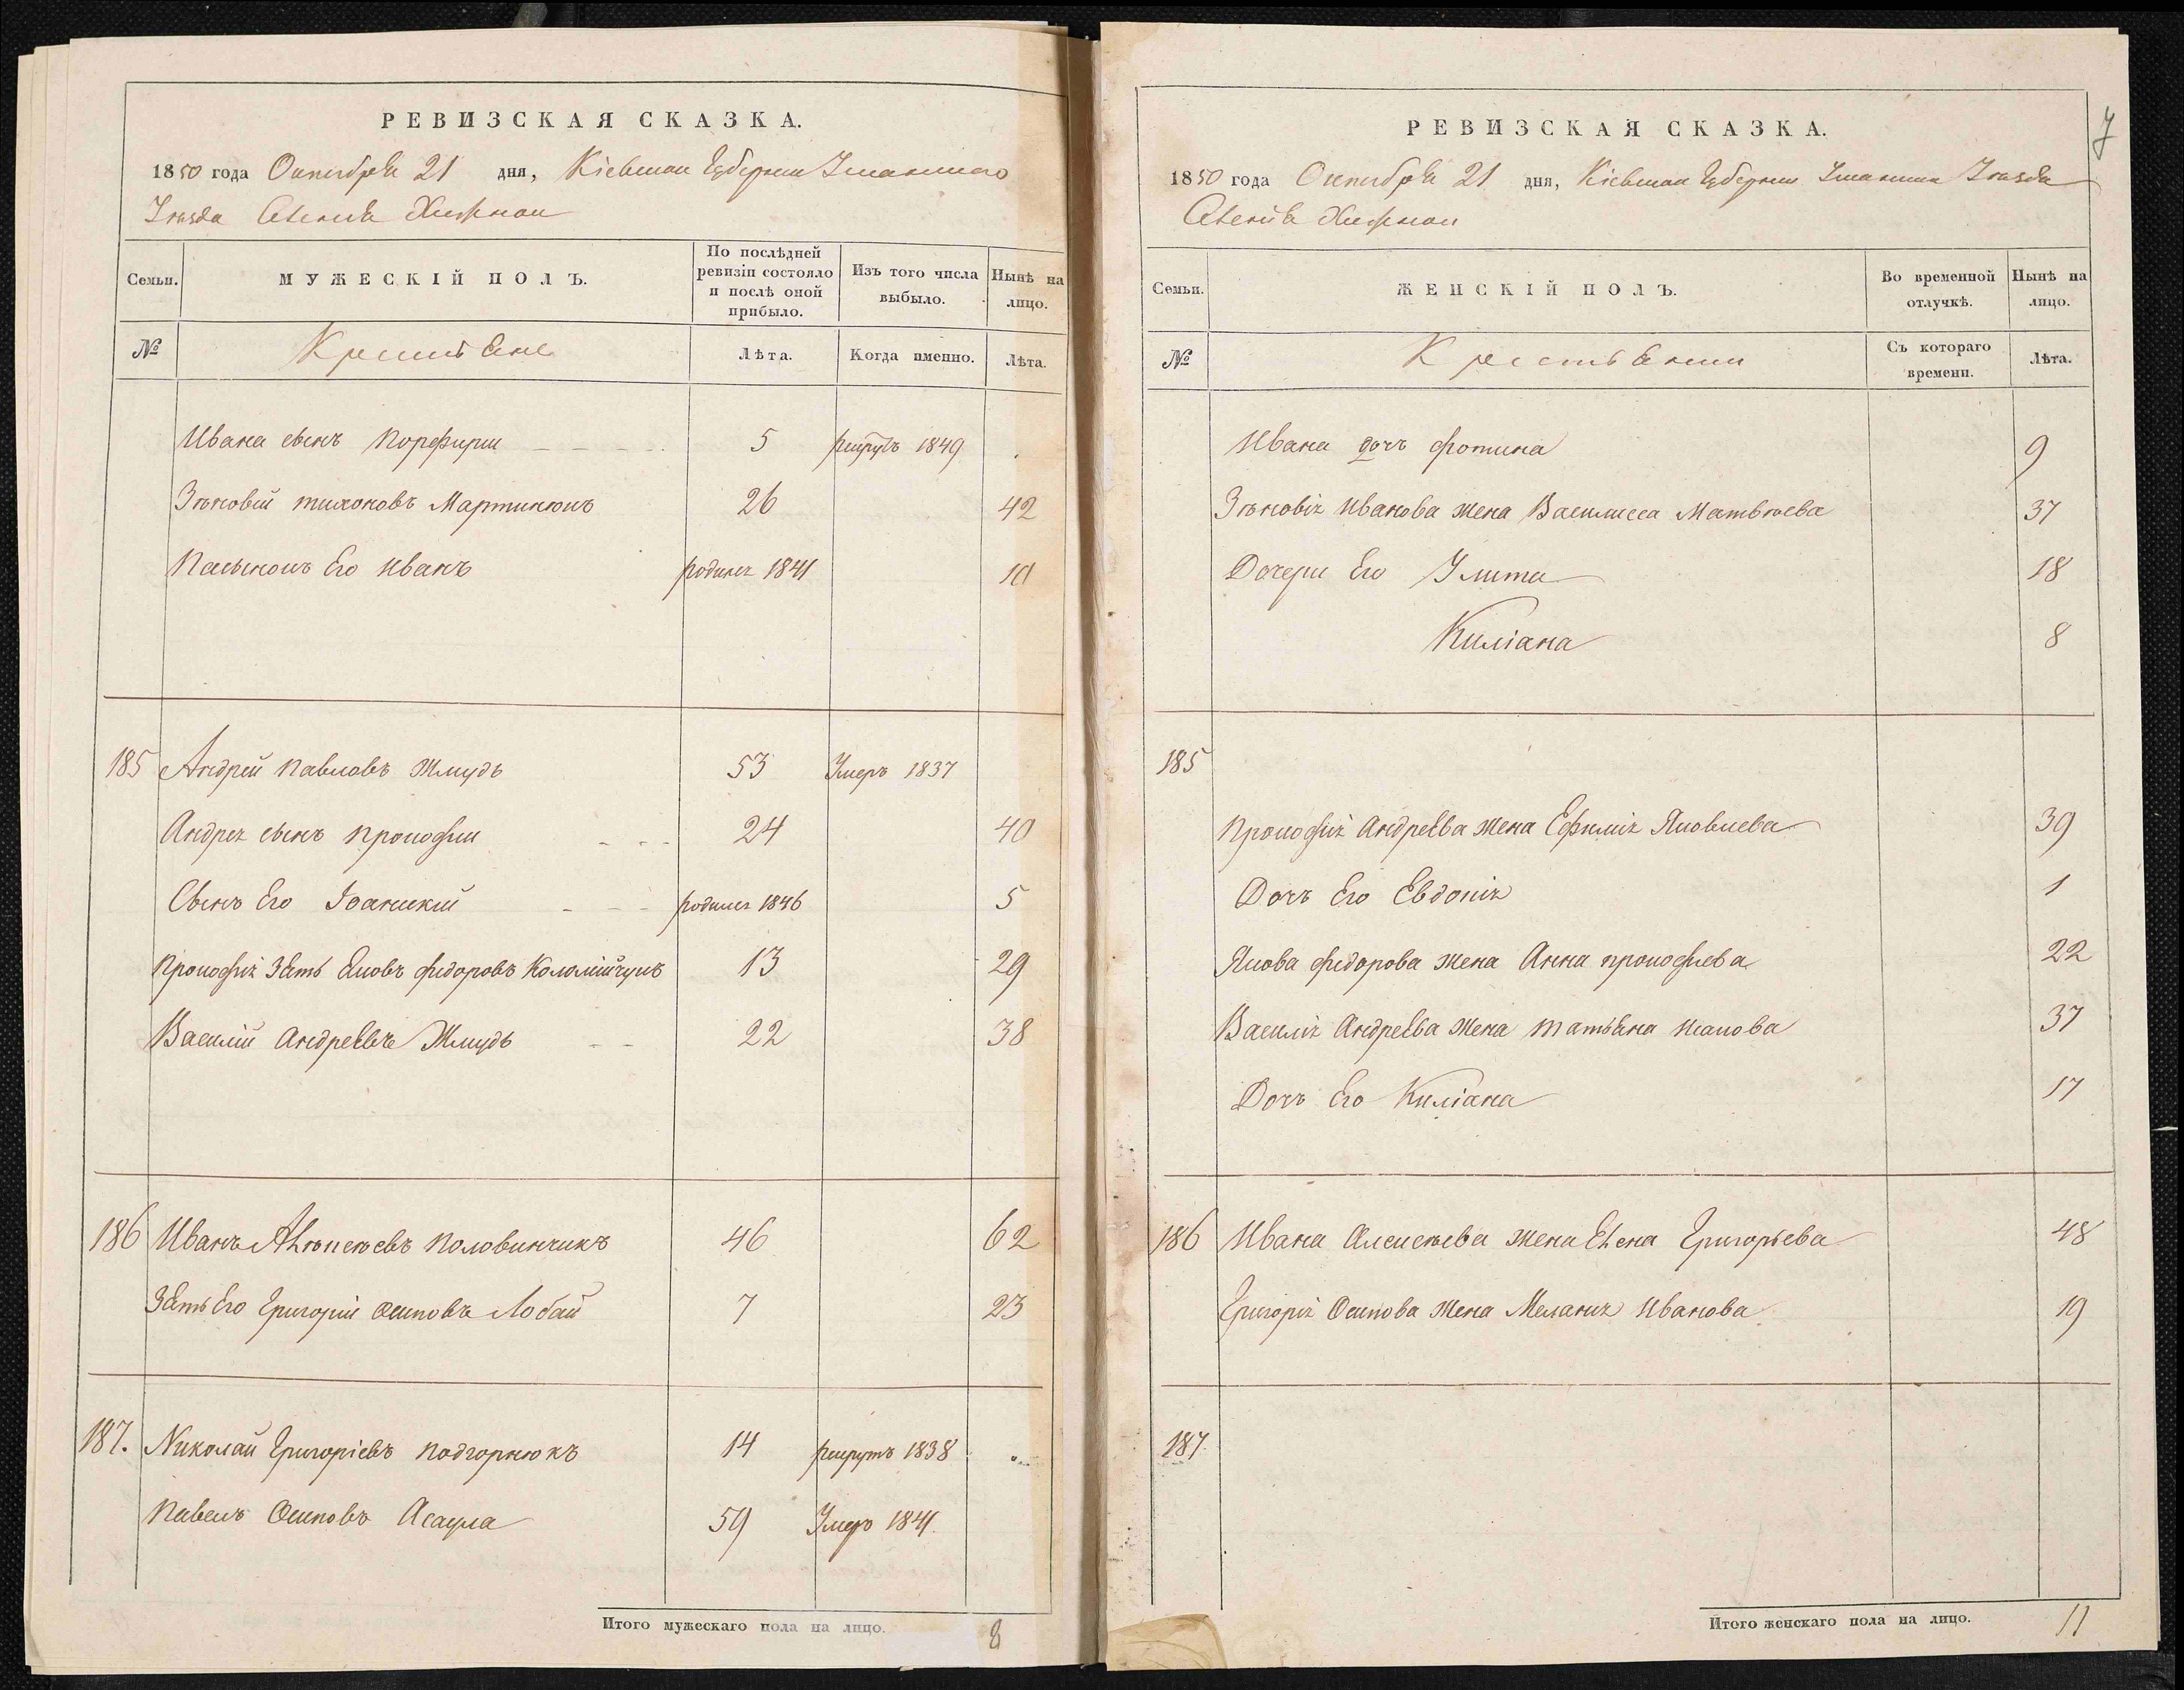 РЕВИЗСКАЯ СКАЗКА.
1850 года Октября 21 дня, Кіевской Губерніи Уманского
Уѣзда Селенія Хижной
Семьи. МУЖЕСКІЙ ПОЛЪ. По послѣдней ревизіи состояло и послѣ оной прибыло. Изъ того числа выбыло. Нынѣ на лицо.
№ Крестьяне Лѣта. Когда именно. Лѣта.
Ивана сынъ Порфирій 5 рекрутъ 1849
Зѣновій Тихоновъ Мартинюкъ 26 42
Пасынокъ Его Иванъ родился 1841 10
185 Андрей Павловъ Жмудь 53 Умеръ 1837
Андрея сынъ Прокофій 24 40
Сынъ Его Іоаникій родился 1846 5
Прокофія Зять Яковъ Федоровъ Коломійчукъ 13 29
Василій Андреевъ Жмудь 22 38
186 Иванъ Алѣксѣевъ Половинчикъ 46 62
Зять Его Григорій Осиповъ Лобай 7 23
187. Николай Григоріевъ Подгорнюкъ 14 рекрутъ 1838
Павелъ Осиповъ Асаула 59 Умеръ 1841
Итого мужескаго пола на лицо. 8
7
РЕВИЗСКАЯ СКАЗКА.
1850 года Октября 21 дня, Кіевской Губерніи Уманскаго Уѣзда
Селенія Хижной
Семьи. ЖЕНСКІЙ ПОЛЪ. Во временной отлучкѣ. Нынѣ на лицо.
№ Крестьянки Съ котораго времени. Лѣта.
Ивана дочъ Фотина 9
Зѣновія Иванова жена Василисса Матвѣева 37
Дочери Его Улита 18
Киліана 8
185
Прокофія Андреева жена Ефимія Яковлева 39
Дочъ Его Евдокія 1
Якова Федорова жена Анна Прокофіева 22
Василія Андреева жена Татьяна Исакова 37
Дочъ Его Киліана 17
186 Ивана Алексѣева жена Елена Григорьева 48
Григорія Осипова жена Меланія Иванова 19
187.
Итого женскаго пола на лицо. 11